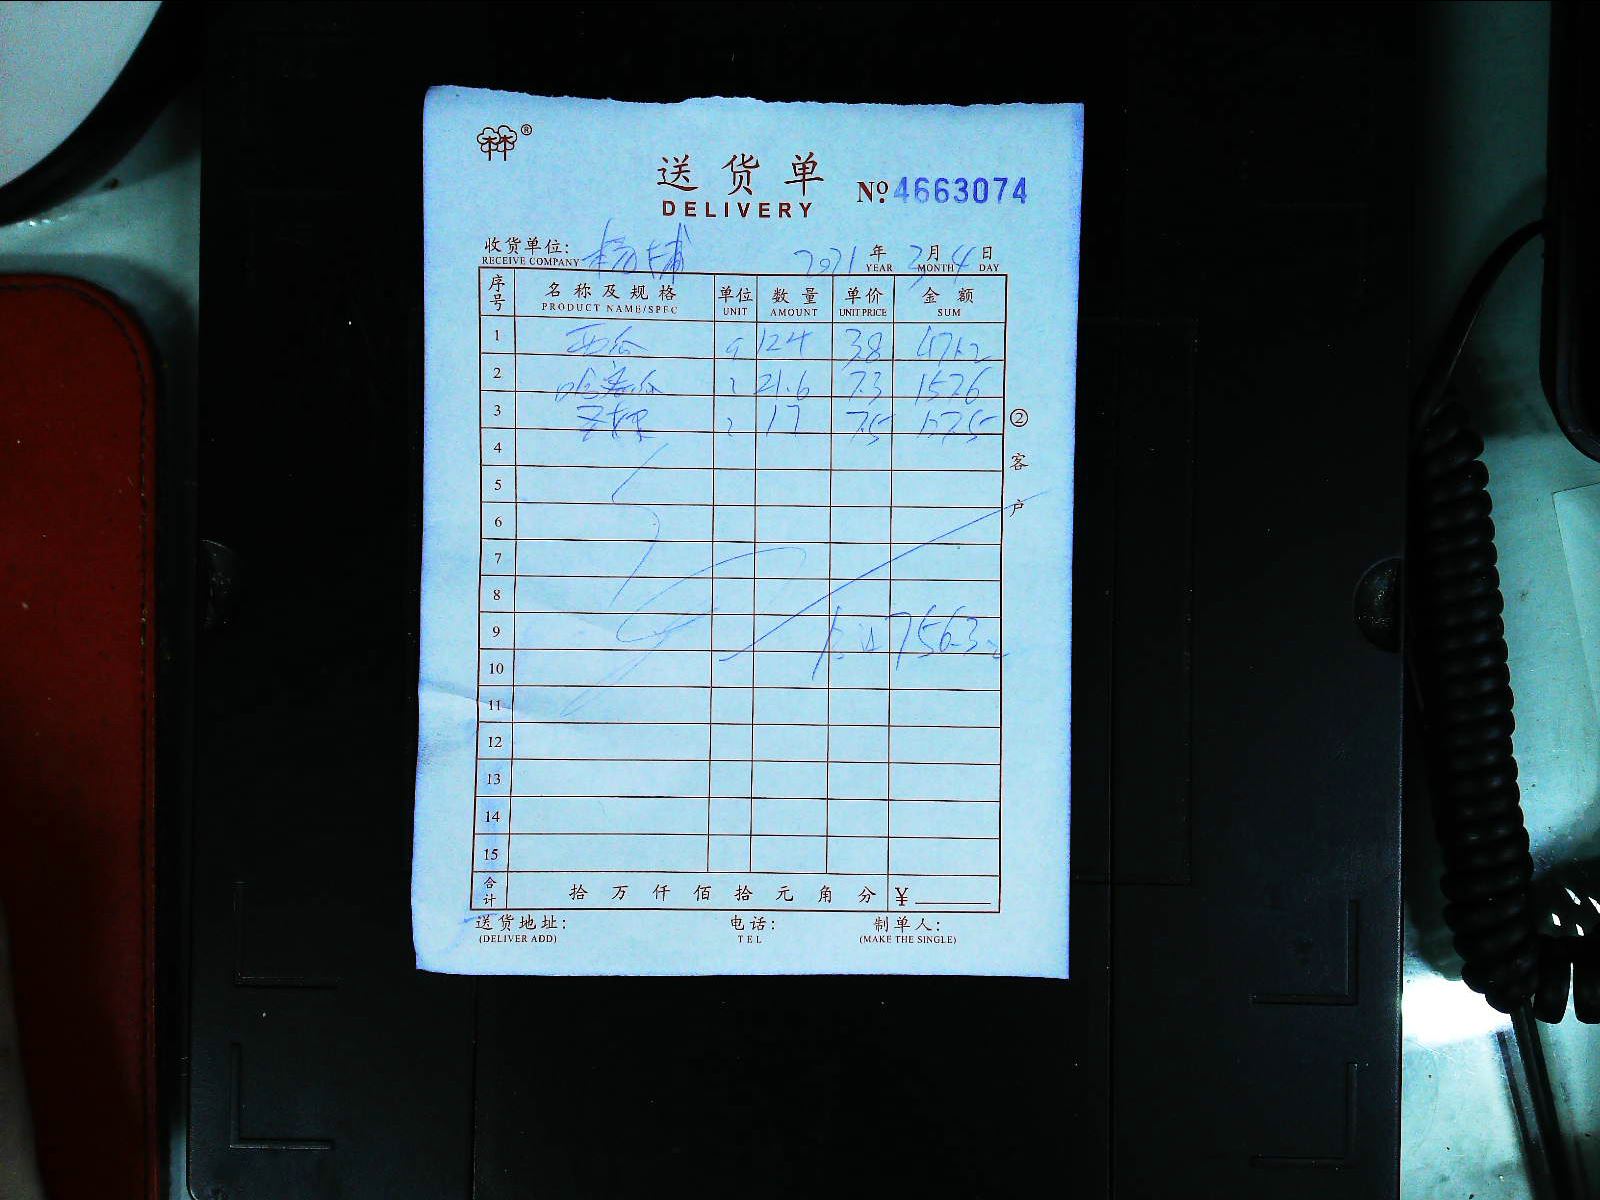 ®
送货单
DELIVERY
№ 4663074
收货单位: 杨埔 2021 年 3 月 4 日
RECEIVE COMPANY YEAR MONTH DAY
序号 名称及规格 单位 数量 单价 金额
PRODUCT NAME/SPEC UNIT AMOUNT UNIT PRICE SUM
1 西瓜 124 38 471.2
2 哈密瓜 21.6 7.3 157.6
3 17 7.5 127.5
4
5
6
7
8
9 合计 756.3元
10
11
12
13
14
15
合计 拾 万 仟 佰 拾 元 角 分 ¥
② 客户
送货地址: 电话: 制单人:
(DELIVER ADD) TEL (MAKE THE SINGLE)